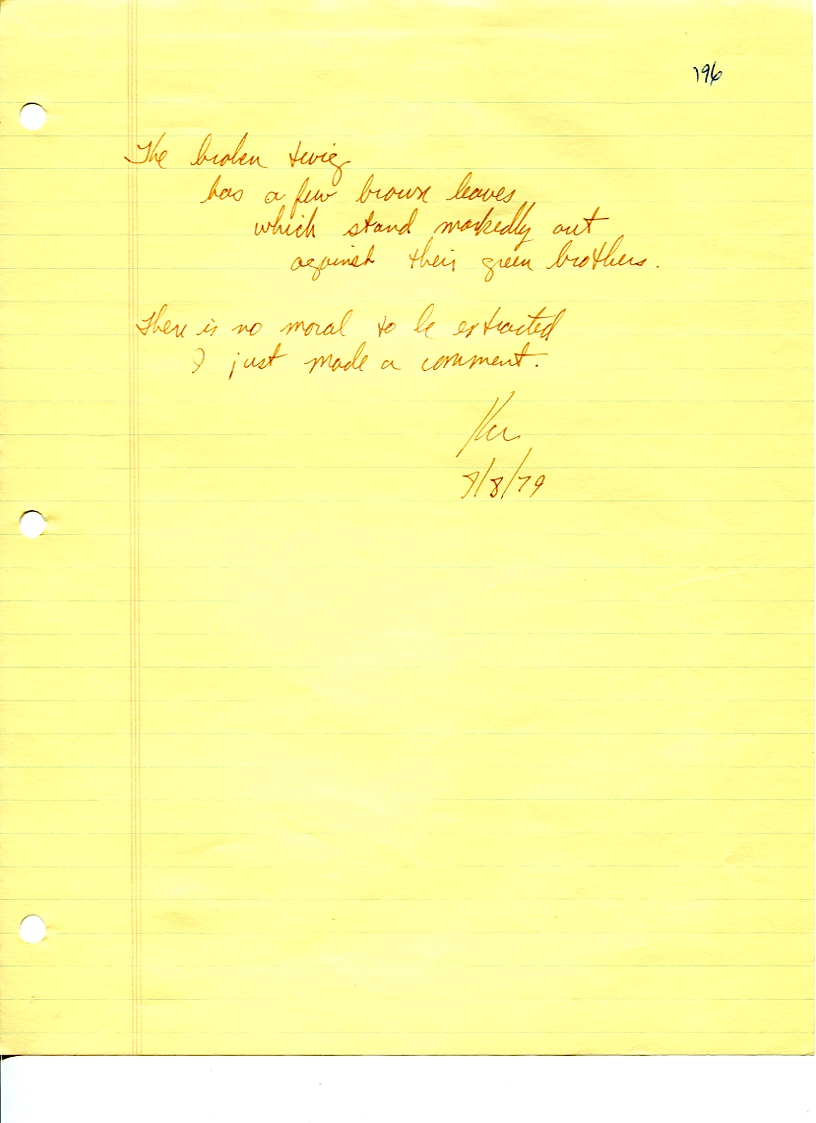 196
The broken twig
has a few brown leaves
which stand markedly out
against their green brothers.
There is no moral to be extracted
I just made a comment.
8/8/79